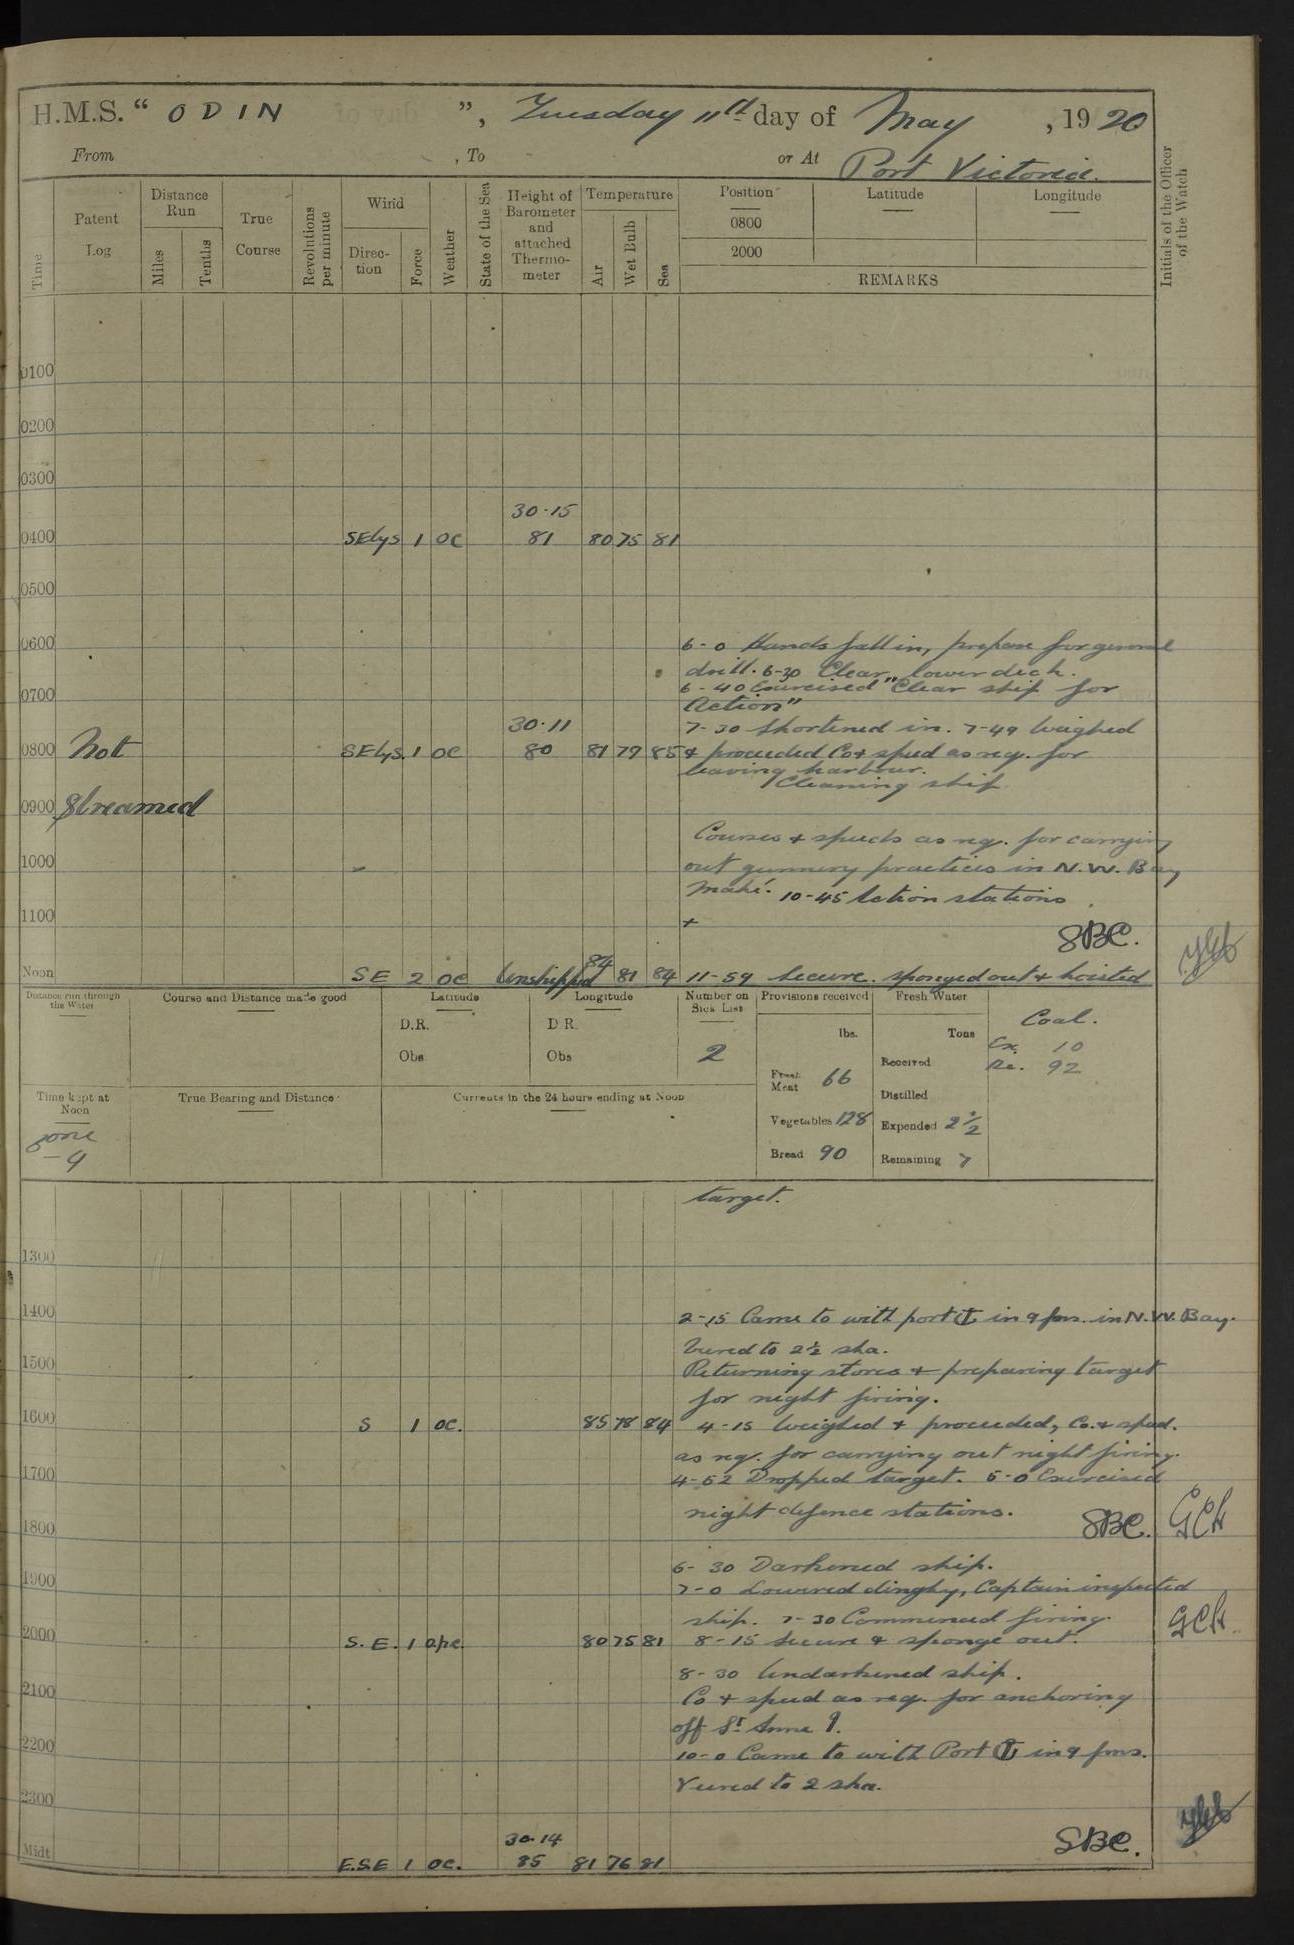 H.M.S. “ ODIN ”, Tuesday 11th day of May, 1920
From , To or At Port Victoria.
Time
Patent Log
Distance Run
Miles
Tenths
True Course
Revolutions per minute
Wind
Direction
Force
Weather
State of the Sea
Height of Barometer and attached Thermometer
Temperature
Air
Wet Bulb
Sea
Position
Latitude
Longitude
0800
2000
REMARKS
Initials of the Officer of the Watch
0100
0200
0300
30.15
0400 SElys 1 oc 81 80 75 81
0500
0600 6-0 Hands fall in, prepare for general
drill. 6-30 Clear lower deck.
6-40 Exercised "Clear ship for
0700
Action"
30.11 7-30 Shortened in. 7-49 Weighed
0800 Not SElys. 1 oc 80 81 79 85 & proceeded Co & speed as req. for
leaving harbour.
Cleaning ship
0900 Streamed
Courses & speeds as req. for carrying
1000 out gunnery practices in N.W. Bay
Mahé. 10-45 Action stations
1100 +
SBC.
Noon SE 2 oc Unshipped 84 81 84 11-59 Secure. sponged out & hoisted
Distance run through the Water
Course and Distance made good
Latitude
D.R.
Obs
Longitude
D.R.
Obs
Number on Sick List
2
Provisions received
lbs.
Fresh Meat 66
Vegetables 128
Bread 90
Fresh Water
Tons
Received
Distilled
Expended 2½
Remaining 7
Coal.
Ex. 10
Re. 92
Time kept at Noon
zone
-4
True Bearing and Distance
Currents in the 24 hours ending at Noon
target.
1300
1400 2-15 Came to with port ⚓ in 9 fms. in N.W. Bay.
Veered to 2½ sha.
1500 Returning stores & preparing target
for night firing.
1600 S 1 oc. 85 78 84 4-15 Weighed & proceeded, Co. & speed.
as req. for carrying out night firing.
1700 4-52 Dropped target. 5-0 Exercised
night defence stations.
1800 SBC. GCH
6-30 Darkened ship.
1900 7-0 Lowered dinghy, Captain inspected
ship. 7-30 Commenced firing.
GCH.
2000 S.E. 1 opc. 80 75 81 8-15 Secure & sponge out.
8-30 Undarkened ship.
2100 Co & speed as req. for anchoring
off St Anne I.
2200 10-0 Came to with Port ⚓ in 9 fms.
Veered to 2 sha.
2300
30.14
SBC.
Midt E.S.E 1 oc. 85 81 76 81